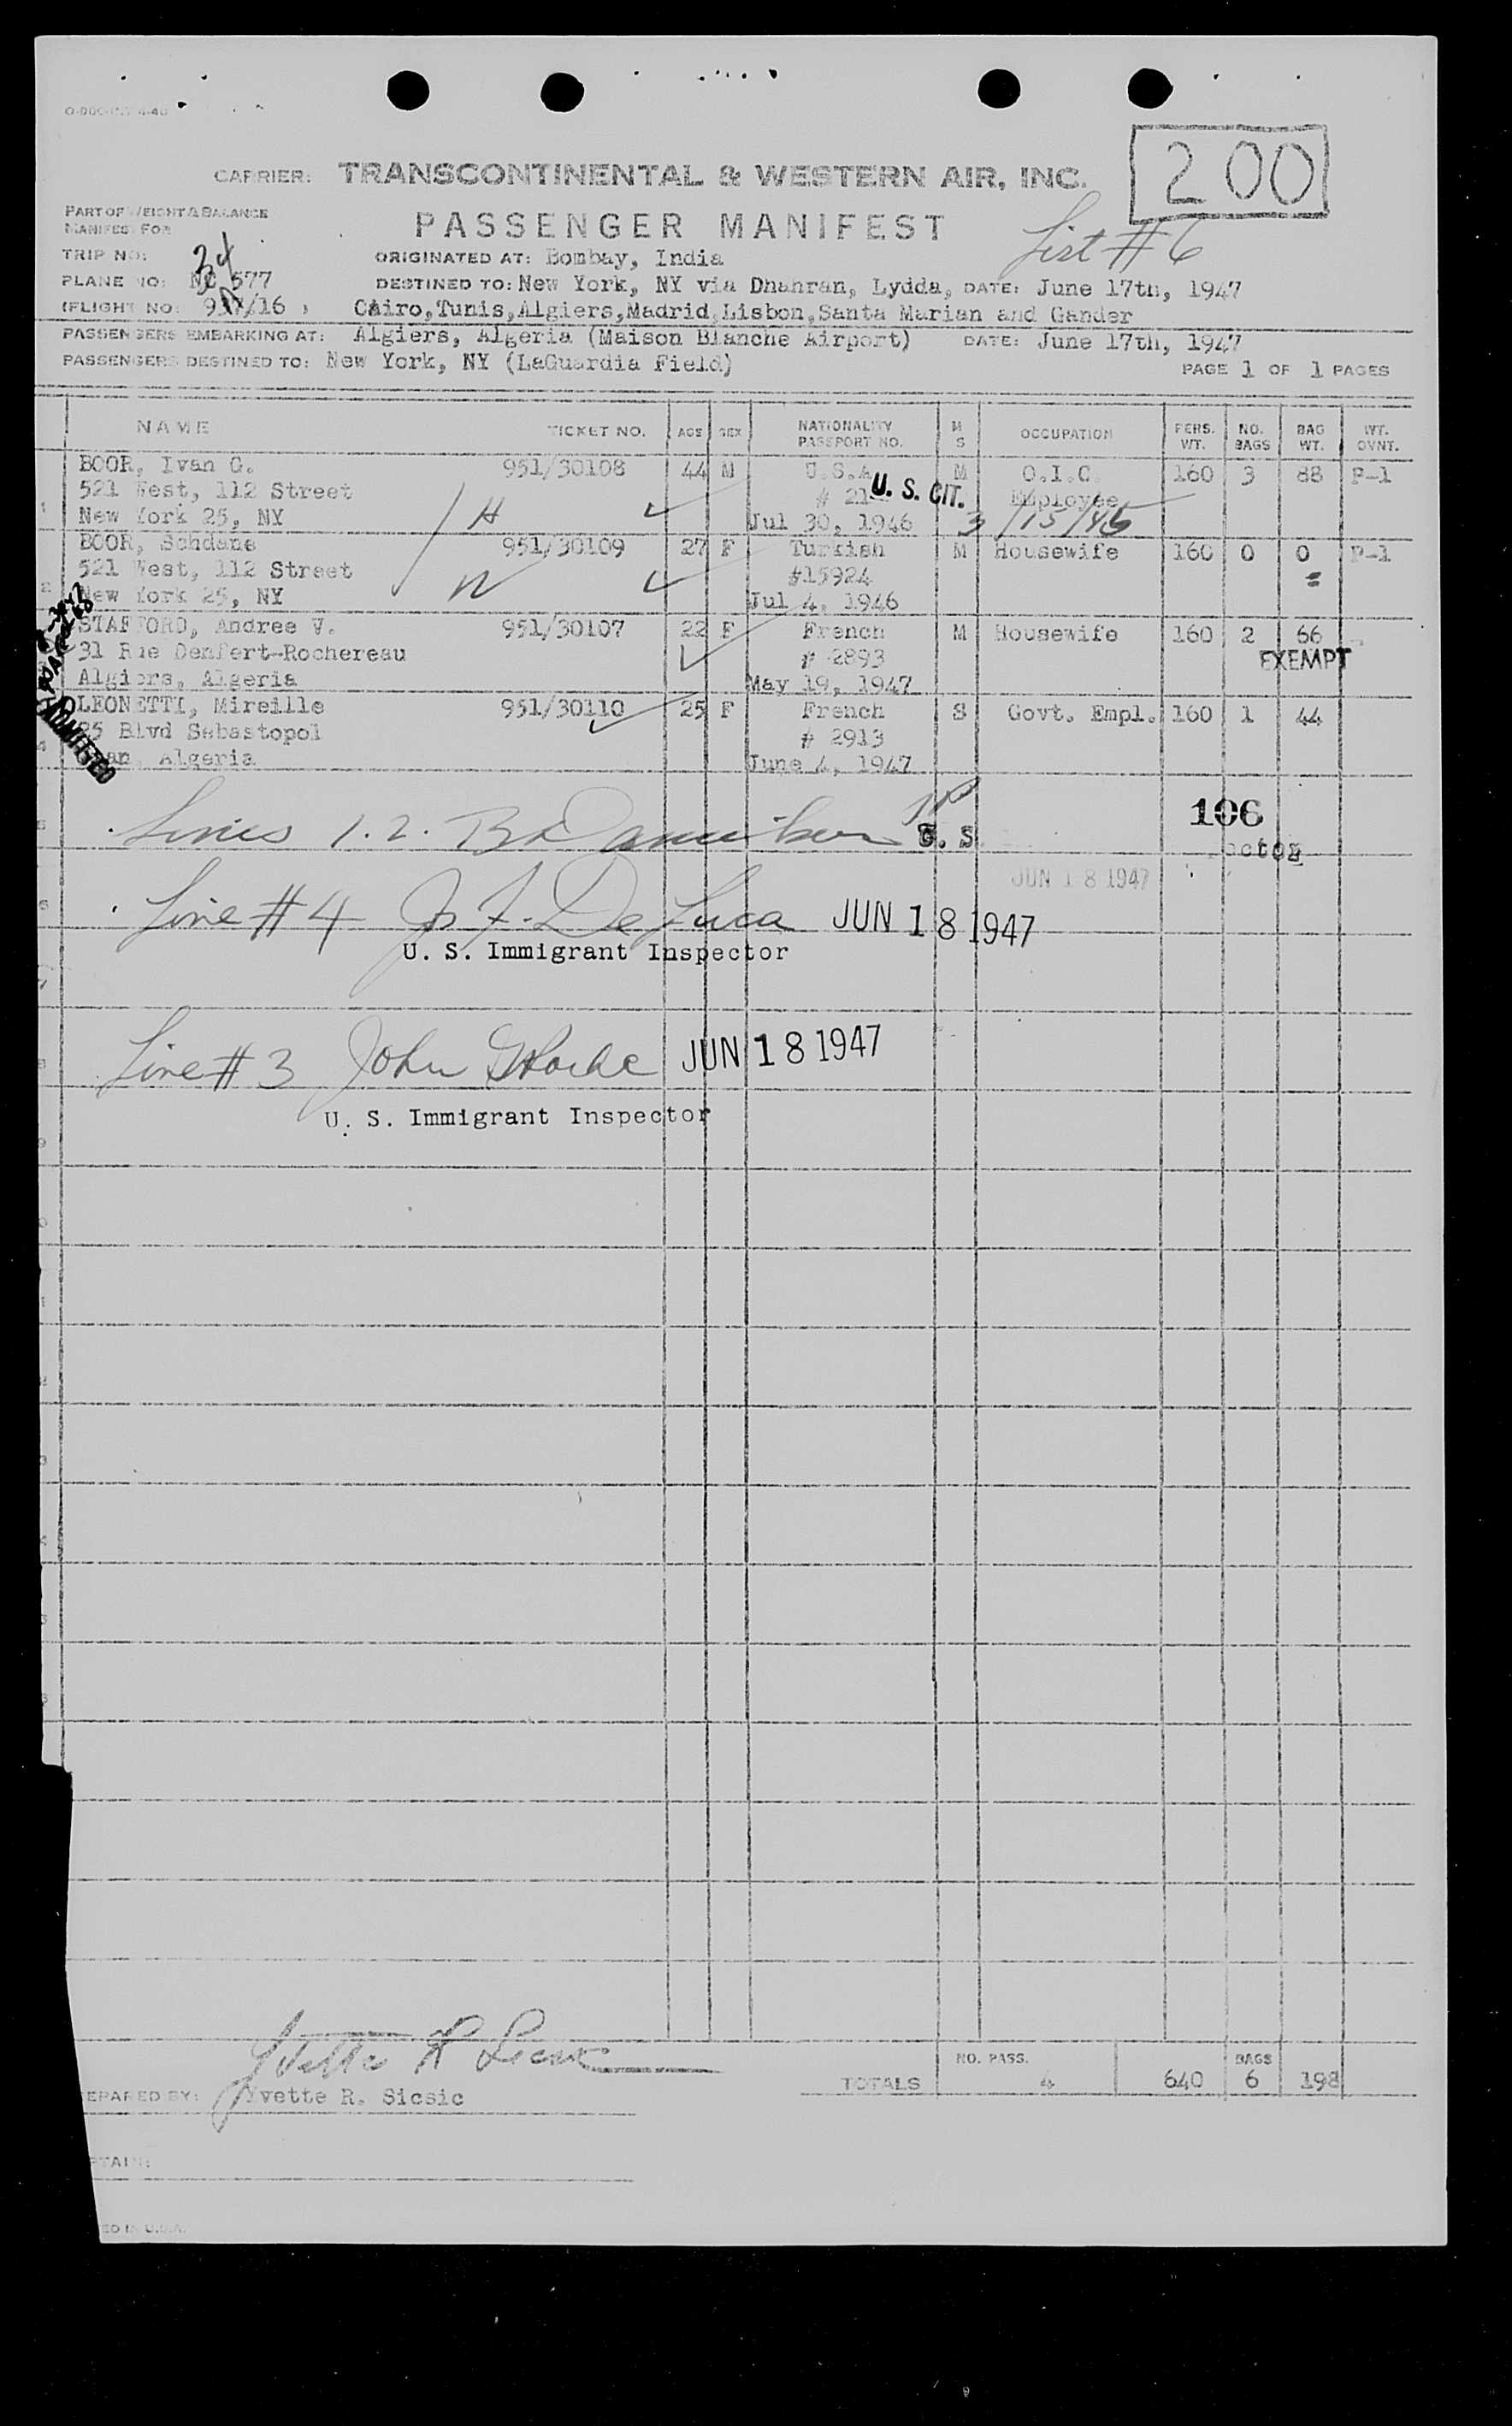 CARRIER: TRANSCONTINENTAL & WESTERN AIR, INC.
200
PART OF WEIGHT & BALANCE
MANIFEST FOR
PASSENGER MANIFEST
List # 6
TRIP NO:
34
ORIGINATED AT: Bombay, India
PLANE NO: NC 577
DESTINED TO: New York, NY via Dhahran, Lydda, DATE: June 17th, 1947
(FLIGHT NO: /16 )
Cairo,Tunis,Algiers,Madrid,Lisbon,Santa Marian and Gander
PASSENGERS EMBARKING AT: Algiers, Algeria (Maison Blanche Airport) DATE: June 17th, 1947
PASSENGERS DESTINED TO: New York, NY (LaGuardia Field)
PAGE 1 OF 1 PAGES
NAME TICKET NO. AGE SEX NATIONALITY PASSPORT NO. M S OCCUPATION PERS. WT. NO. BAGS BAG WT. WT. OVNT.
BOOR, Ivan G. 951/30108 44 M U.S.A. M O.I.C. 160 3 88 P-1
521 West, 112 Street # 21 U. S. CIT. Employee
1 New York 25, NY H Jul 30, 1946 3/15/46
BOOR, Schdane 951/30109 27 F Turkish M Housewife 160 0 0 P-1
521 West, 112 Street #15924
2 New York 25, NY N Jul 4, 1946
STAFFORD, Andree V. 951/30107 22 F French M Housewife 160 2 66
31 Rue Denfert-Rochereau # 2893 EXEMPT
Algiers, Algeria May 19, 1947
LEONETTI, Mireille 951/30110 25 F French S Govt. Empl. 160 1 44
25 Blvd Sebastopol # 2913
Oran, Algeria June 4, 1947
ADMITTED
106
Lines 1. 2.
JUN 18 1947
Line # 4 De Luca JUN 18 1947
U. S. Immigrant Inspector
Line # 3 John JUN 18 1947
U. S. Immigrant Inspector
NO. PASS. BAGS
TOTALS 4 640 6 198
PREPARED BY: Yvette R. Sicsic